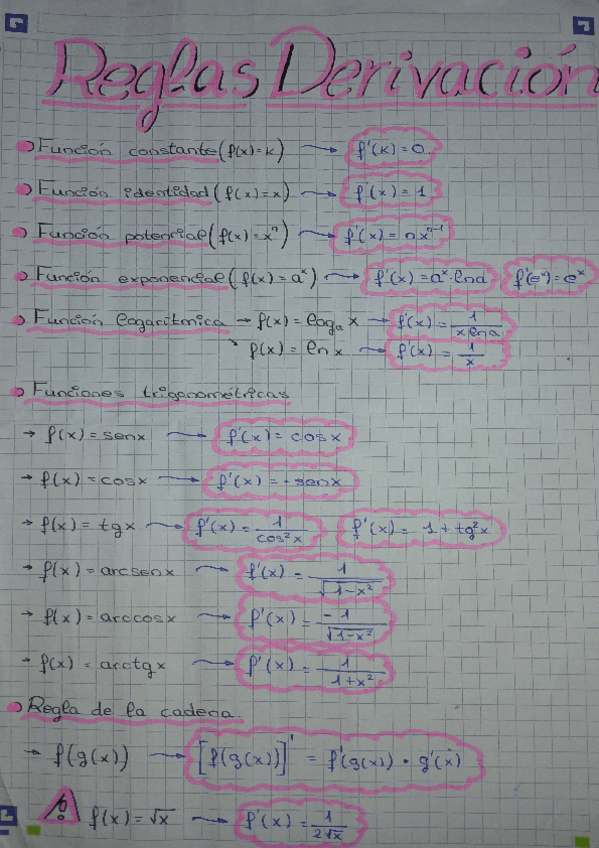 Reglas Derivación
Función constante (f(x)=k) → f'(k)=0
Función identidad (f(x)=x) → f'(x)=1
Función potencial (f(x)=xⁿ) → f'(x)=nxⁿ⁻¹
Función exponencial (f(x)=aˣ) → f'(x)=aˣ·lna f'(eˣ)=eˣ
Función logarítmica → f(x)=logₐx → f'(x)=1/(x lna)
↘ f(x)=lnx → f'(x)=1/x
Funciones trigonométricas
→ f(x)=senx → f'(x)=cosx
→ f(x)=cosx → f'(x)=-senx
→ f(x)=tgx → f'(x)=1/cos²x f'(x)=1+tg²x
→ f(x)=arcsenx → f'(x)=1/√(1-x²)
→ f(x)=arccosx → f'(x)=-1/√(1-x²)
→ f(x)=arctgx → f'(x)=1/(1+x²)
Regla de la cadena.
→ f(g(x)) → [f(g(x))]' = f'(g(x))·g'(x)
! f(x)=√x → f'(x)=1/(2√x)